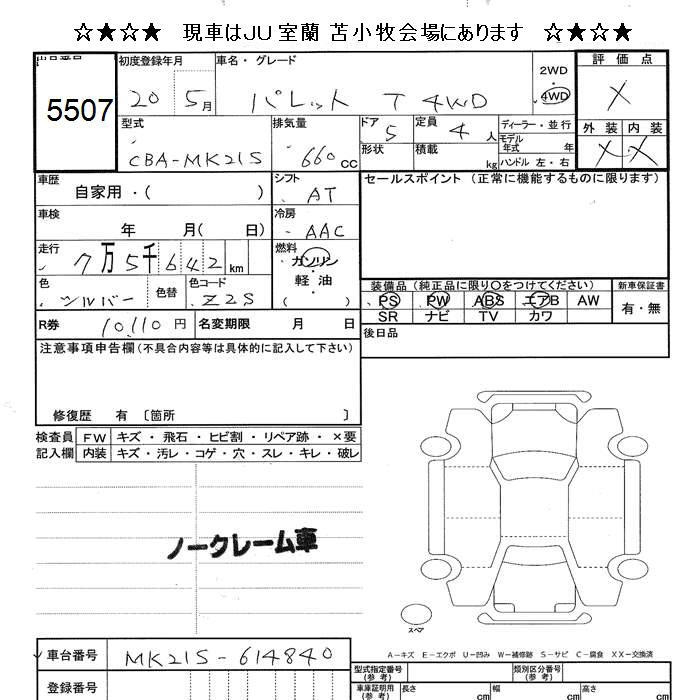 ☆★☆★ 現車はJU室蘭 苫小牧会場にあります ☆★☆★
出品番号 初度登録年月 車名・グレード 評価点
5507 20 5月 パレット T 4WD 2WD 4WD X
型式 排気量 ドア 定員 ディーラー・並行 外装 内装
CBA-MK21S 660cc 5 4人 モデル年式 年 X X
形状 積載 kg ハンドル 左・右
車歴 シフト セールスポイント (正常に機能するものに限ります)
自家用・( ) AT
車検 冷房
年 月( 日) AAC
走行 燃料
7万5千642km ガソリン
軽油
( )
色 色替 色コード 装備品 (純正品に限り○をつけてください) 新車保証書
シルバー Z2S PS PW ABS エアB AW 有・無
SR ナビ TV カワ
R券 10,110円 名変期限 月 日 後日品
注意事項申告欄(不具合内容等は具体的に記入して下さい)
修復歴 有 〔箇所 〕
検査員 FW キズ・飛石・ヒビ割・リペア跡・×要
記入欄 内装 キズ・汚レ・コゲ・穴・スレ・キレ・破レ
ノークレーム車
スペア
A-キズ E-エクボ U-凹み W-補修跡 S-サビ C-腐食 XX-交換済
車台番号 MK21S-614840
型式指定番号(参考) 類別区分番号(参考)
登録番号 車庫証明用(参考) 長さ cm 幅 cm 高さ cm